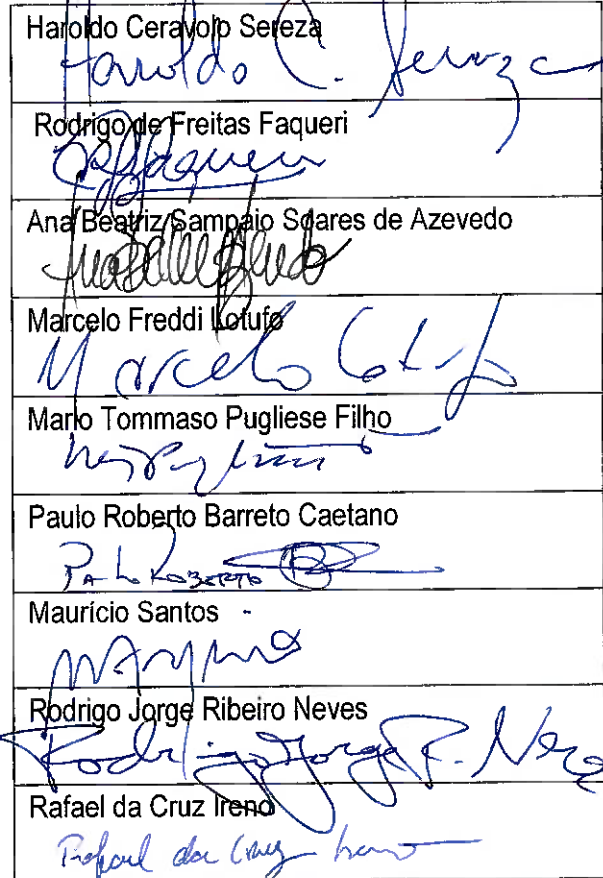 Haroldo Ceravolo Sereza
Haroldo C. Sereza
Rodrigo de Freitas Faqueri
Ana Beatriz Sampaio Soares de Azevedo
Marcelo Freddi Lotufo
Marcelo Lotufo
Mario Tommaso Pugliese Filho
Paulo Roberto Barreto Caetano
Paulo Roberto
Maurício Santos
Rodrigo Jorge Ribeiro Neves
Rodrigo Jorge R. Neves
Rafael da Cruz Ireno
Rafael da Cruz Ireno